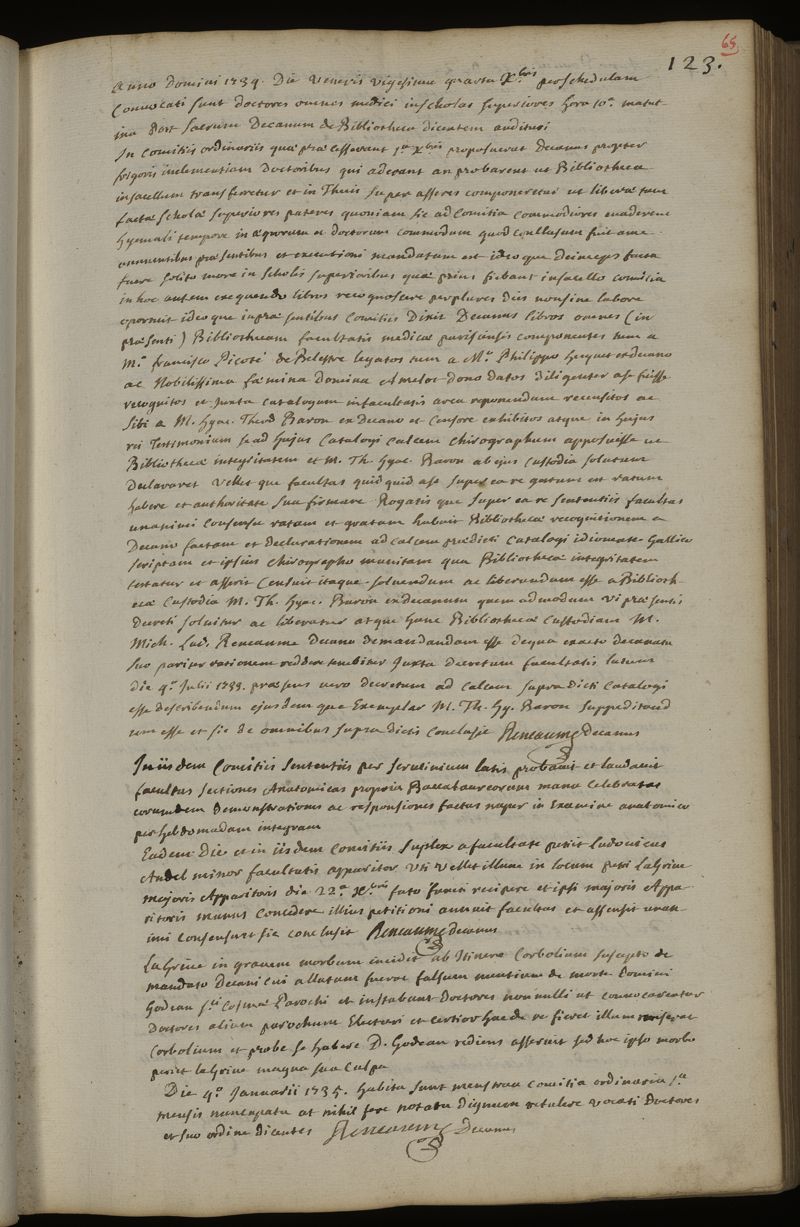 65
123.
Anno Domini 1734. Die Veneris vigesima quarta Xbris per schedulam
Convocati sunt doctores omnes medici in scholas superiores hora 10a. matut-
ina post sacrum Decanum de Bibliotheca dicentem audituri
In Comitiis ordinariis quae praecesserant 1a Xbris proposuerat Decanus propter
frigoris inclementiam Doctoribus qui aderant an probarent ut Bibliotheca
in sacellum transferretur et in Thecis super asseres componeretur ut liberae tum
factae scholae superiores paterent quoniam sic ad Comitia commodiores evaderent
hyemali tempore in aegrorum et doctorum commodum quod collaudatum fuit ame
annuentibus praesentibus et executioni mandatum est ideoque deinceps facta
fuere solito more in scholis superioribus quae prius fiebant in sacello comitia
in hoc autem exequendo libros recognoscere perplures dies non sine labore
oportuit ideoque in praesentibus Comitiis Dixit Decanus libros omnes (in
praesenti) Bibliothecam facultatis medicae parisiensis componentes tum a
M.o francisco Picoté de Belestre legatos tum a M.o Philippo hecquet exdecano
ac Nobilissima foemina Domina Amelot dono datos diligenter a se fuisse
recognitos et juxta catalogum in facultatis arca reponendum recensitos ac
sibi a M. Hyac. Theod Baron exdecano et Censore exhibitos atque in hujus
rei Testimonium se ad hujus Catalogi calcem chirographum apposuisse ac
Bibliothecae integritatem et M. Th. Hyac. Baron ab ejus custodia solutum
Declararet velletque facultas quidquid a se super ea re gestum est ratum
habere et authoritate sua firmare Rogatisque super ea re sententiis facultas
unanimi Consensu ratam et gratam habuit Bibliothecae recognitionem a
Decano factam et declarationem ad calcem praedicti Catalogi idiomate Gallico
scriptam et ipsius chirographo munitam qua Bibliothecae integritatem
testatur et asserit Censuit itaque solvendum ac liberandum esse a Biblioth-
ecae Custodia M. Th. Hyac. Baron exdecanum quem admodum vi praesentis
Decreti solvitur ac liberatur atque hanc Bibliothecae Custodiam M.
Mich. Lud. Reneaume Decano demandandam esse de qua exacto decanatu
suo pariter rationem reddere tenebitur Juxta decretum facultatis latum
die 4a. Julii 1733. praesens vero decretum ad calcem supra Dicti Catalogi
esse describendum ejusdemque Exemplar M. Th. Hy. Baron suppeditand
um esse et sic de omnibus supra dictis conclusit Reneaume Decanus
In iisdem Comitiis Sententiis per scrutinium latis probavit et laudavit
facultas sectiones Anatomicas propria Baccalaureorum manu celebratas
eorumdem demonstrationes ac responsiones factas nuper in Examine anatomico
per hebdomadam integram
Eadem Die et in iisdem Comitiis supplex a facultate petiit Ludovicus
Andel minor facultatis apparitor uti vellet illum in locum petri LaGrive
majoris Apparitoris die 22a Xbris fato functi recipere et ipsi majoris Appa
ritoris munus concedere illius petitioni annuit facultas et assensit unan
imi consensu et sic conclusit Reneaume decanus
LaGrive in gravem morbum incidit ab Itinere Corbolium suscepto de
mandato Decani cui allatum fuerat falsum nuntium de morte Domini
Godeau Sti Cosmae Parochi et instabant Doctores non nulli ut convocarentur
Doctores alium parochum Electuri et certior hac de re fieret illum miserat
Corbolium et probe se habere D. Godeau rediens asseruit sed hoc ipso morbo
periit laGrive magna sua culpa
Die 4a Januarii 1735. habita sunt menstrua comitia ordinaria 1a
mensis nuncupata at nihil fere notatu dignum retulere vocati Doctores
et suo ordine dicentes Reneaume Decanus